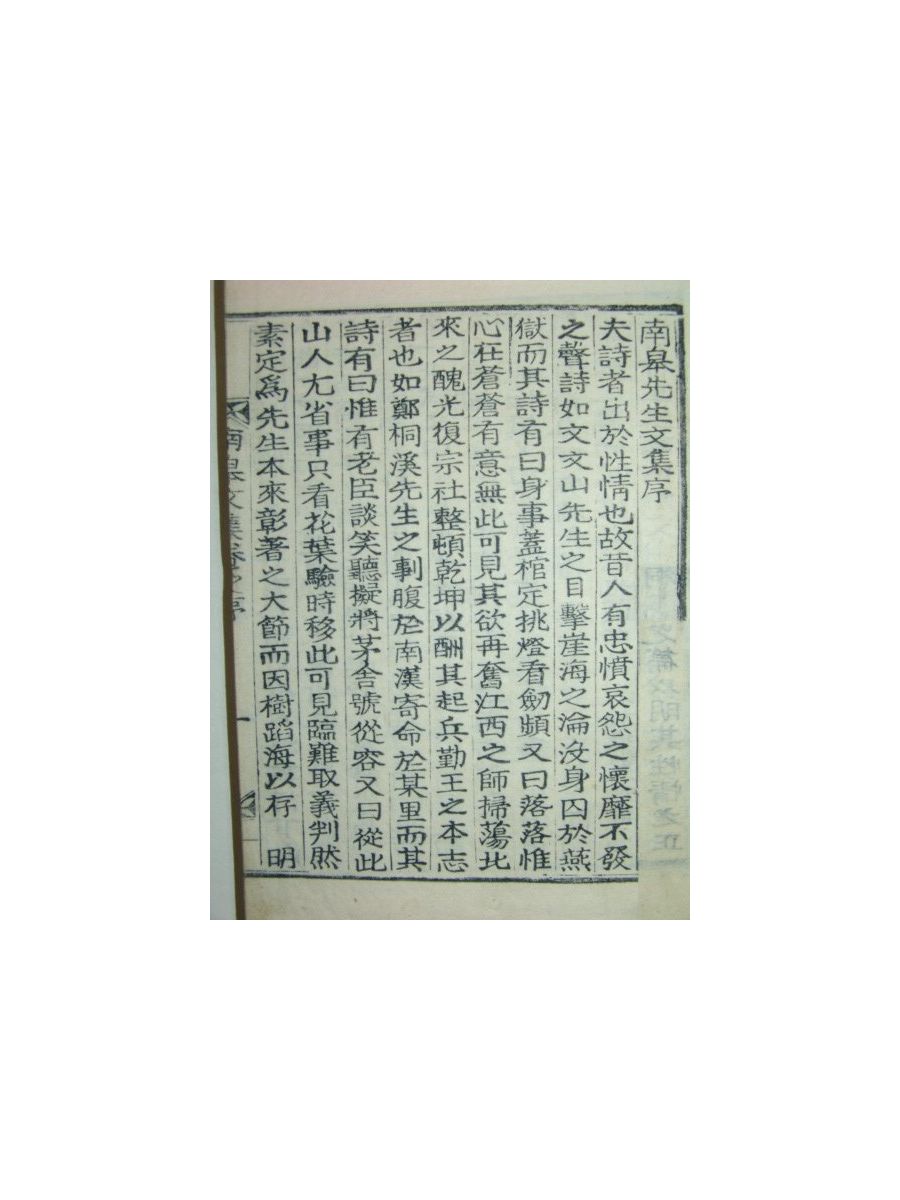 南皐先生文集序
夫詩者出於性情也故昔人有忠憤哀怨之懷靡不發
之聲詩如文文山先生之目擊崖海之淪沒身囚於燕
獄而其詩有曰身事蓋棺定挑燈看劒頻又曰落落惟
心在蒼蒼有意無此可見其欲再奮江西之師掃蕩北
來之醜光復宗社整頓乾坤以酬其起兵勤王之本志
者也如鄭桐溪先生之剚腹於南漢寄命於某里而其
詩有曰惟有老臣談笑聽擬將茅舍號從容又曰從此
山人尤省事只看花葉驗時移此可見臨難取義判然
素定爲先生本來彰著之大節而因樹蹈海以存 明
南皐文集卷之序 一